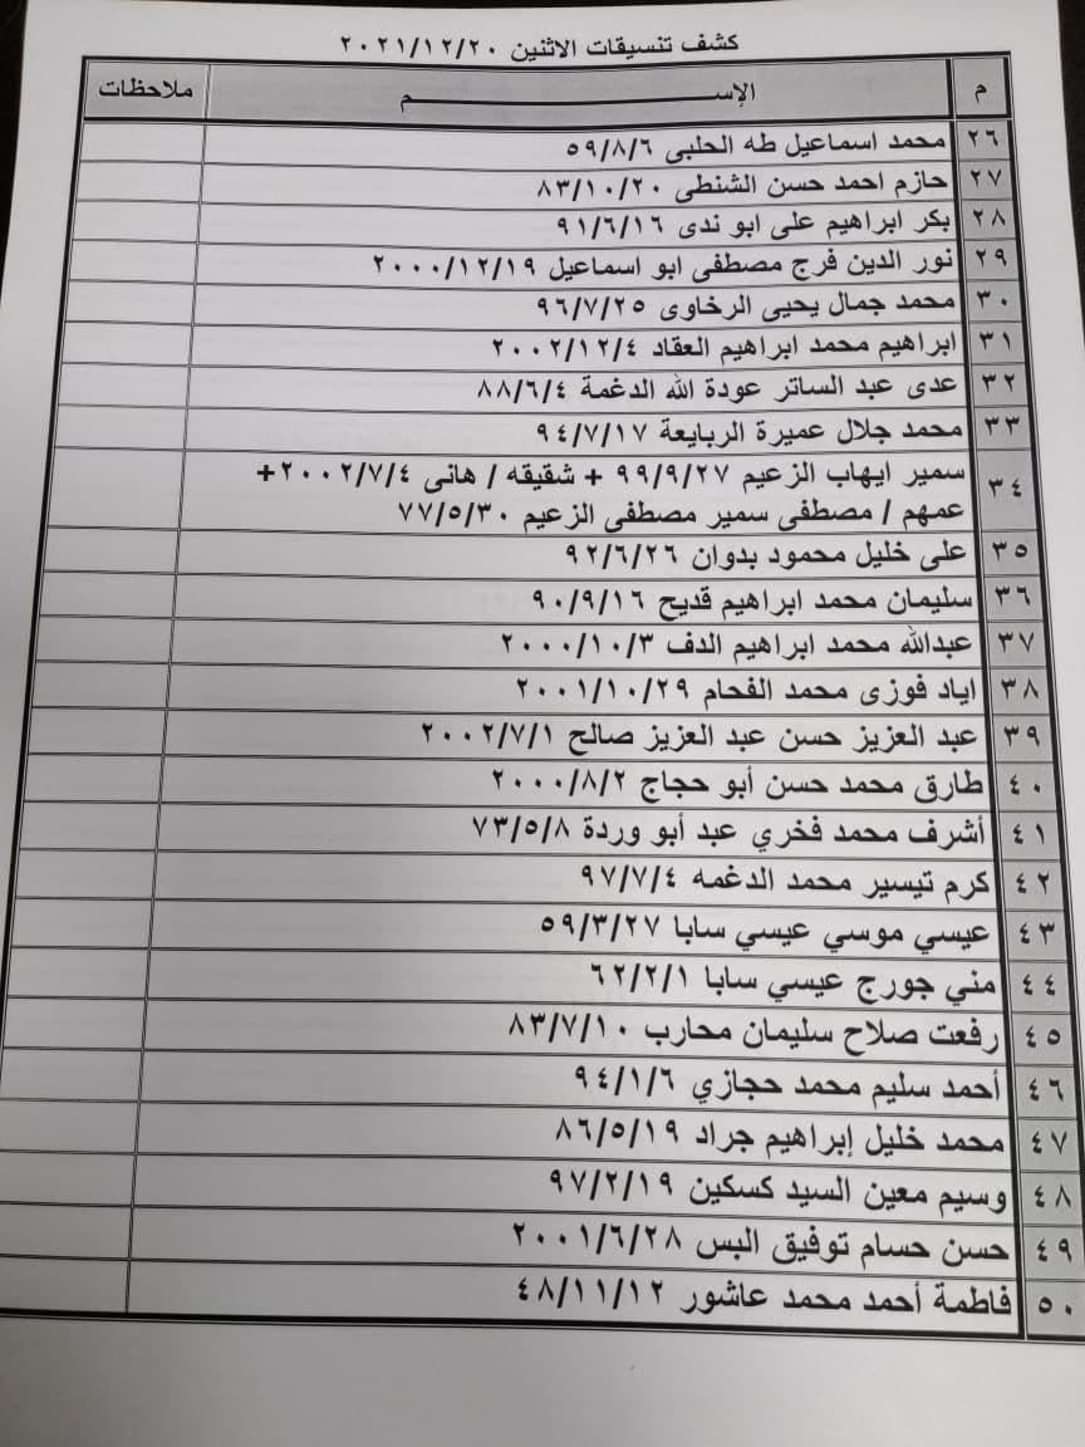 كشف تنسيقات الاثنين ٢٠٢١/١٢/٢٠
م الإســـــــــــــم ملاحظات
٢٦ محمد اسماعيل طه الحلبى ٥٩/٨/٦
٢٧ حازم احمد حسن الشنطى ٨٣/١٠/٢٠
٢٨ بكر ابراهيم على ابو ندى ٩١/٦/١٦
٢٩ نور الدين فرج مصطفى ابو اسماعيل ٢٠٠٠/١٢/١٩
٣٠ محمد جمال يحيى الرخاوى ٩٦/٧/٢٥
٣١ ابراهيم محمد ابراهيم العقاد ٢٠٠٢/١٢/٤
٣٢ عدى عبد الساتر عودة الله الدغمة ٨٨/٦/٤
٣٣ محمد جلال عميرة الربايعة ٩٤/٧/١٧
٣٤ سمير ايهاب الزعيم ٩٩/٩/٢٧ + شقيقه / هانى ٢٠٠٢/٧/٤+
عمهم / مصطفى سمير مصطفى الزعيم ٧٧/٥/٣٠
٣٥ على خليل محمود بدوان ٩٢/٦/٢٦
٣٦ سليمان محمد ابراهيم قديح ٩٠/٩/١٦
٣٧ عبدالله محمد ابراهيم الدف ٢٠٠٠/١٠/٣
٣٨ اياد فوزى محمد الفحام ٢٠٠١/١٠/٢٩
٣٩ عبد العزيز حسن عبد العزيز صالح ٢٠٠٢/٧/١
٤٠ طارق محمد حسن أبو حجاج ٢٠٠٠/٨/٢
٤١ أشرف محمد فخري عبد أبو وردة ٧٣/٥/٨
٤٢ كرم تيسير محمد الدغمه ٩٧/٧/٤
٤٣ عيسي موسي عيسي سابا ٥٩/٣/٢٧
٤٤ مني جورج عيسي سابا ٦٢/٢/١
٤٥ رفعت صلاح سليمان محارب ٨٣/٧/١٠
٤٦ أحمد سليم محمد حجازي ٩٤/١/٦
٤٧ محمد خليل إبراهيم جراد ٨٦/٥/١٩
٤٨ وسيم معين السيد كسكين ٩٧/٢/١٩
٤٩ حسن حسام توفيق البس ٢٠٠١/٦/٢٨
٥٠ فاطمة أحمد محمد عاشور ٤٨/١١/١٢